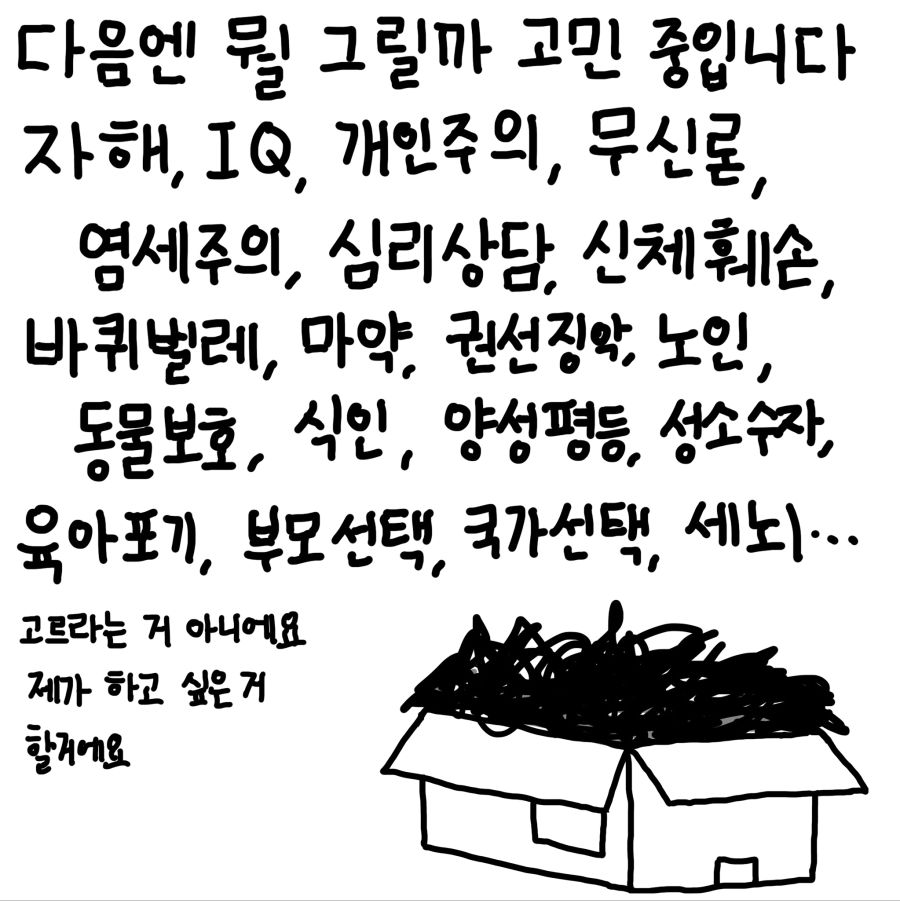 다음엔 뭘 그릴까 고민 중입니다
자해, IQ, 개인주의, 무신론,
염세주의, 심리상담, 신체훼손,
바퀴벌레, 마약, 권선징악, 노인,
동물보호, 식인, 양성평등, 성소수자,
육아포기, 부모선택, 국가선택, 세뇌...
고르라는 거 아니에요
제가 하고 싶은 거
할거에요